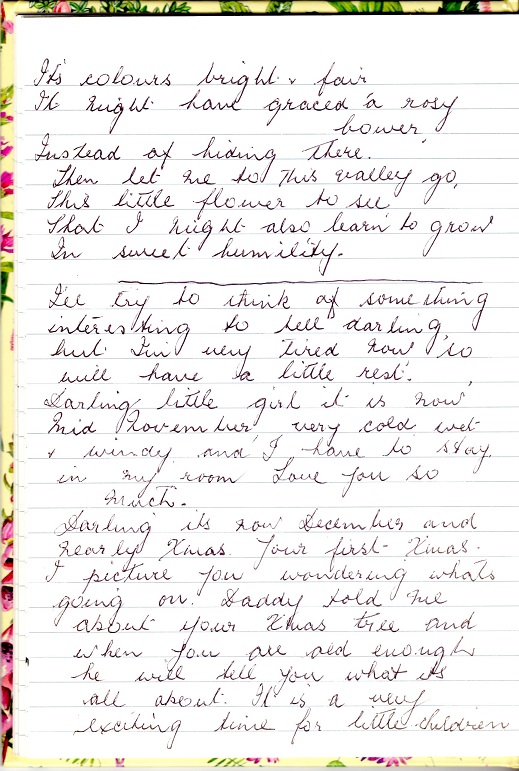 It's colours bright & fair
It might have graced a rosy
bower,
Instead of hiding there.
Then let me to this valley go,
This little flower to see
That I might also learn to grow
In sweet humility.
I'll try to think of something
interesting to tell darling,
but I'm very tired now so
will have a little rest.
Darling little girl it is now
Mid November very cold wet
& windy and I have to stay
in my room Love you so
much.
Darling its now December and
nearly Xmas. Your first Xmas.
I picture you wondering whats
going on. Daddy told me
about your Xmas tree and
when you are old enough
he will tell you what its
all about. It is a very
exciting time for little children